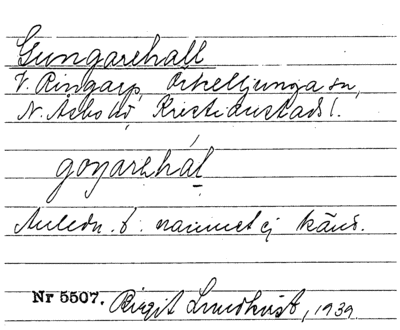 Gungarehall
V. Ringarp, Örkelljunga sn,
N. Åsbo hd, Kristianstads l.
goŋarehál
Anledn. t. namnet ej känd.
Nr 5507. Birgit Lundkvist, 1939.